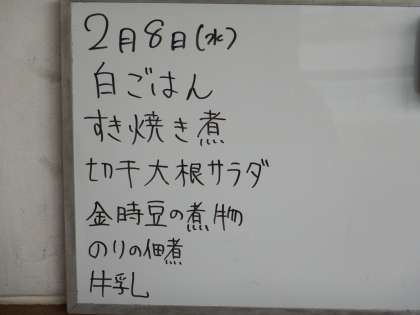 2月8日(水)
白ごはん
すき焼き煮
切干大根サラダ
金時豆の煮物
のりの佃煮
牛乳